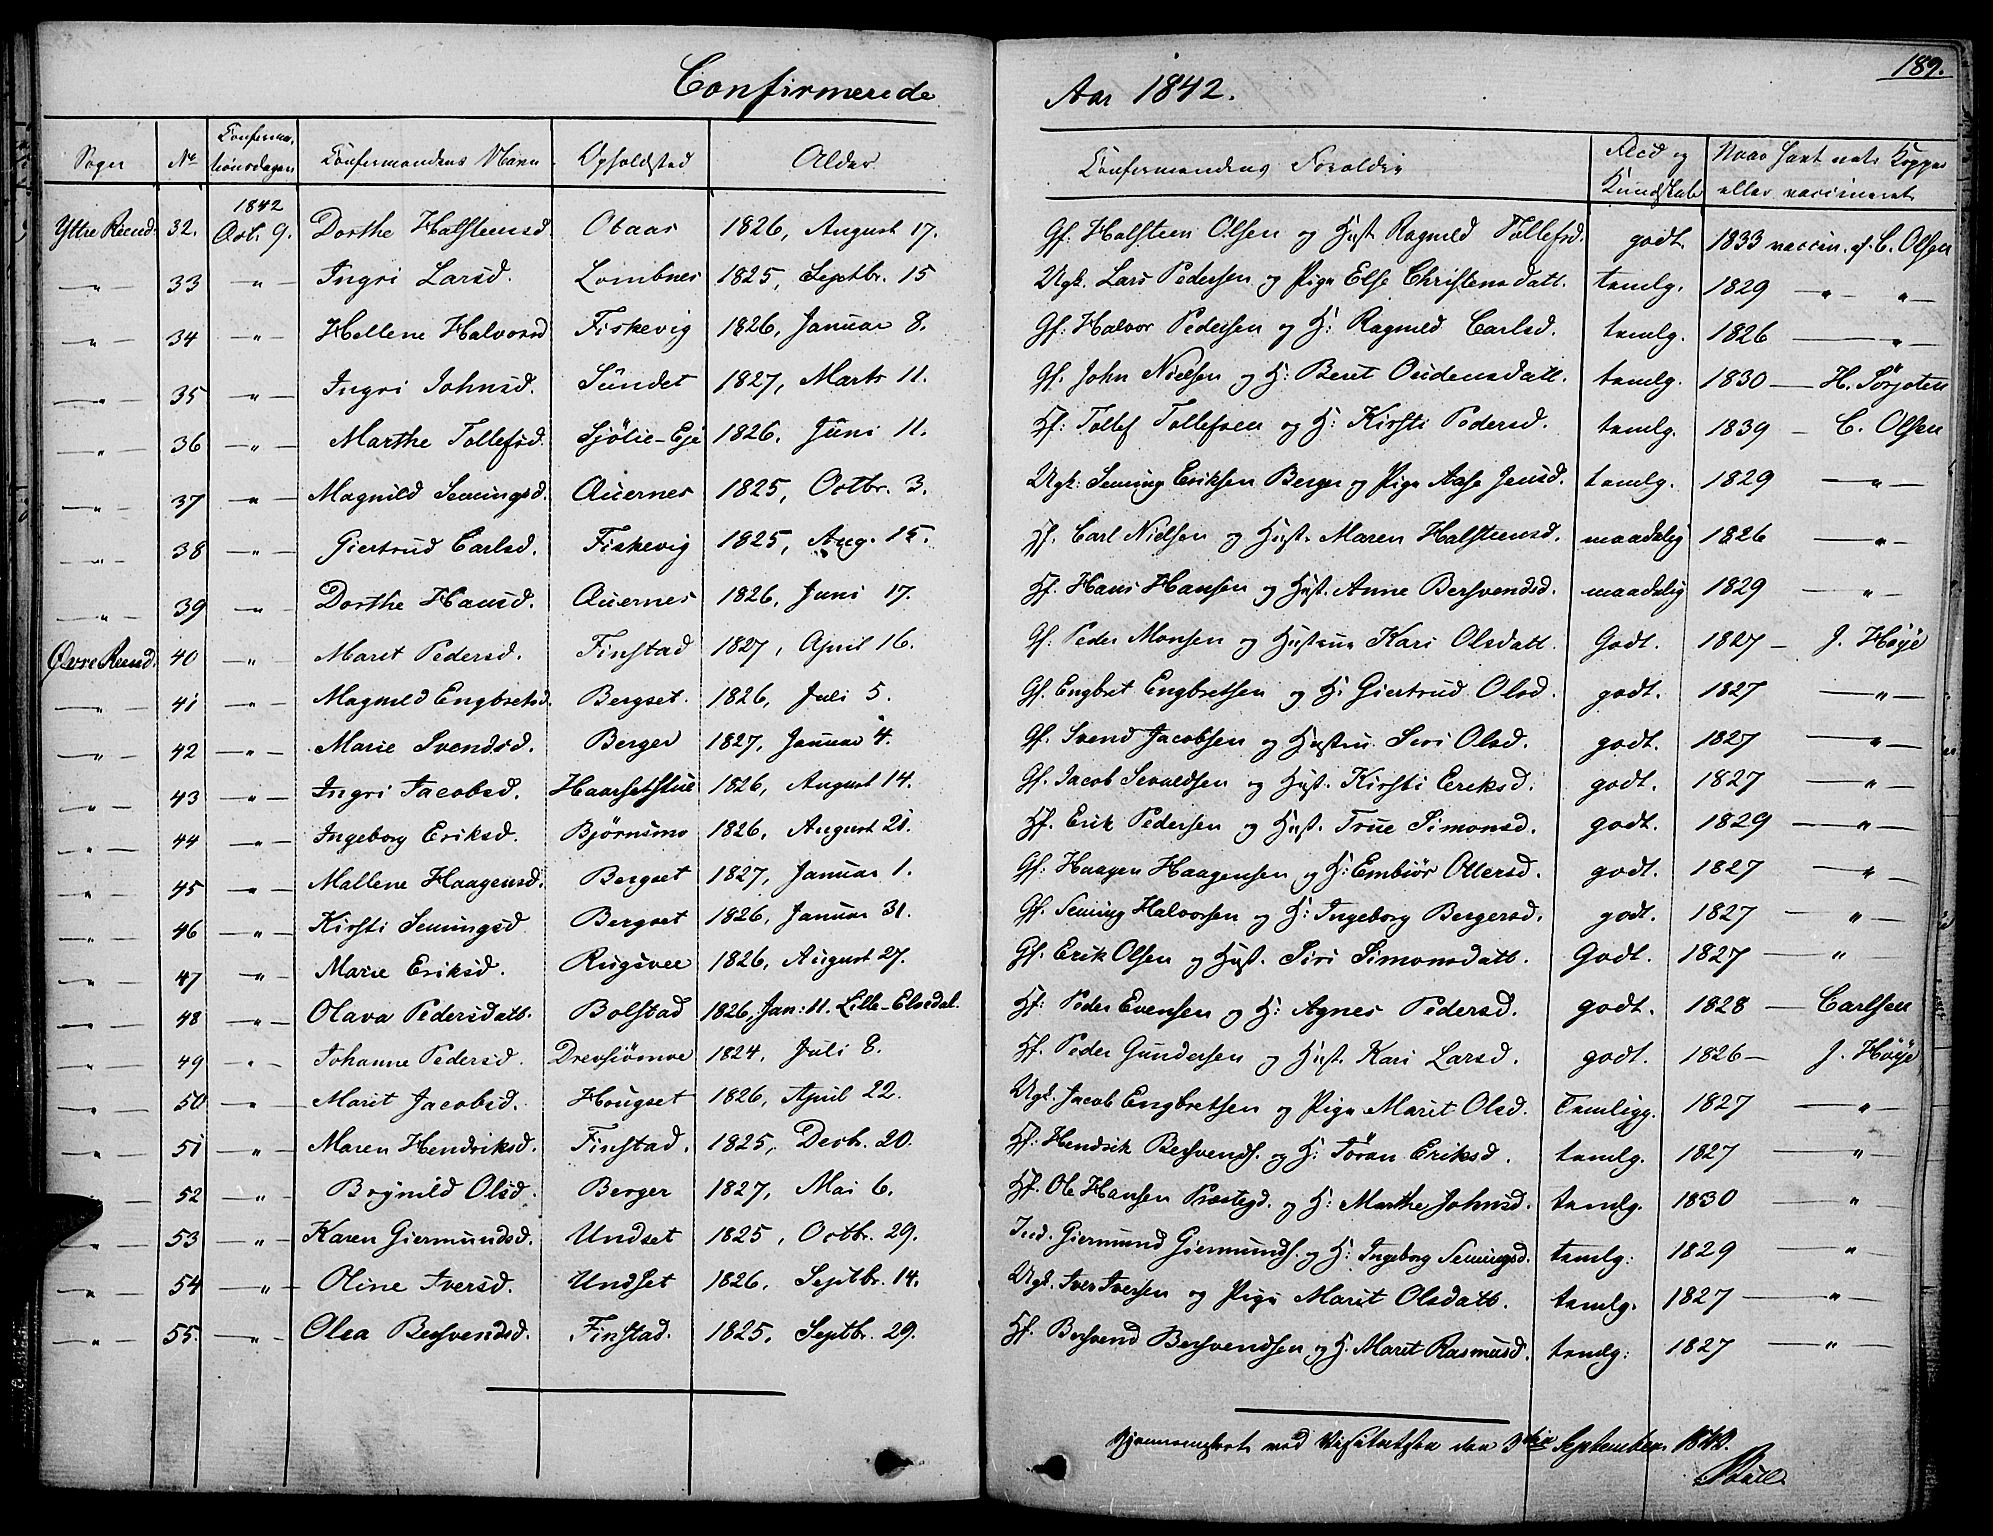 189.
Confirmerede Aar 1842.
Sogn No Confirmationsdagen Confirmandens Navn Opholdsted Alder Confirmandens Forældre Flid og Kundskab Naar havt nat. Kopper eller vaccineret
Yttre Rend. 32. 1842 Oct. 9. Dorthe Halsteensd. Obaas 1826, August 17. Gf. Halsteen Olsen og Hust. Ragnild Tollefsd. godt 1833 vaccin. af C. Olsen
—"— 33 —"— Ingri Larsd. Lombnes 1825, Septbr. 15 Ugk. Lars Pedersen og Pige Else Christensdatt. temlg. 1829 —"— "—
"— 34 —"— Hellene Halvorsd Fiskevig 1826, Januar 8. Gf. Halvor Pedersen og H: Ragnild Carlsd. temlg. 1826 —"—
—"— 35 —"— Ingri Johnsd. Sundet 1827, Marts 11. Gf. John Nielsen og H: Beret Oudensdatt. temlg. 1830 — H. Sörjoten
—"— 36 —"— Marthe Tollefsd. Sjölie-Eje 1826. Juni 11. Hf: Tollef Tollefsen og H: Kirsti Pedersd. temlg. 1839 — C. Olsen
—"— 37 "— Magnild Semingsd. Auernes 1825, Octbr. 3. Ugk: Seming Eriksen Berger og Pige Aase Jensd. temlg. 1829 —"—
—"— 38 —"— Giertrud Carlsd. Fiskevig 1825, Aug. 15. Hf. Carl Nielsen og Hust. Maren Halsteensd. maadelig 1826 —"—
—"— 39 —"— Dorthe Hansd. Auernes 1826, Juni 17. Hf. Hans Hansen og Hust. Anne Bersvendsd. maadelig 1829 —"—
Øvre Rend. 40 —"— Marit Pedersd. Finstad 1827, April 16. Gf. Peder Monsen og Hustrue Kari Olsdatt. Godt. 1827 — J. Høye
—"— 41 —"— Magnild Engbretsd. Bergset. 1826, Juli 5. Gf. Engbret Engbretsen og H: Giertrud Olsd. godt. 1827 —"—
—"— 42 —"— Marie Svendsd. Berger 1827, Januar 4. Gf. Svend Jacobsen og Hustru Siri Olsd. godt. 1827 —"—
—"— 43 —"— Ingri Jacobsd. Haarsetstue 1826, August 14. Gf. Jacob Sevaldsen og Hust. Kirsti Eriksd. godt. 1827 —"—
—"— 44 —"— Ingeborg Eriksd. Bjørnsmo 1826, August 21. Hf. Erik Pedersen og Hust. True Simonsd. godt. 1829 —"—
—"— 45 —"— Mallene Haagensd. Bergset 1827, Januar 1. Gf: Haagen Haagensen og H: Embiør Ottersd. godt. 1827 —"—
—"— 46 —"— Kirsti Semingsd Bergset 1826, Januar 31. Gf. Seming Halvorsen og H: Ingeborg Bergersd. godt. 1827 —"—
—"— 47 "— Marie Eriksd. Rugsvee 1826, August 27. Gf. Erik Olsen og Hust. Siri Simonsdatt. Godt. 1827 —"—
—"— 48 —"— Olava Pedersdatt. Bolstad 1826, Jan: 11. Lille-Elvedal. Hf: Peder Evensen og H: Agnes Pedersd. godt. 1828 — Carlsen
—"— 49 —"— Johanne Pedersd. Drevsiømoe 1824, Juli 8. Hf. Peder Gundersen og Hust. Kari Larsd. godt. 1826 — J. Høye
—"— 50 —"— Marit Jacobsd. Hougset 1826, April 22. Ugk. Jacob Engbretsen og Pige Marit Olsd. Temligg. 1827 —"—
—"— 51 —"— Maren Hendriksd. Finstad. 1825, Decb. 20. Hf: Hendrik Bersvends. og H: Töran Eriksd. temlg. 1827 —"—
—"— 52 —"— Brynild Olsd. Berger 1827, Mai 6. Hf. Ole Hansen Præstegd. og H: Marthe Johnsd. temlg. 1830 "—
—"— 53 —"— Karen Giermundsd. Undset 1825, Octbr. 29. Ind. Giermund Giermunds. og H: Ingeborg Semingsd. temlg: 1829 —"—
—"— 54 —"— Oline Iversd. Undset 1826, Septbr. 14. Ugk. Iver Iversen og Pige Marit Olsdatt. temlg. 1827 —"—
—"— 55. —"— Olea Bersvendsd. Finstad. 1825, Septbr. 29. Hf. Bersvend Bersvendsen og H. Marit Rasmusd. temlg: 1827 —"—
ved Visitatsen den 3die September